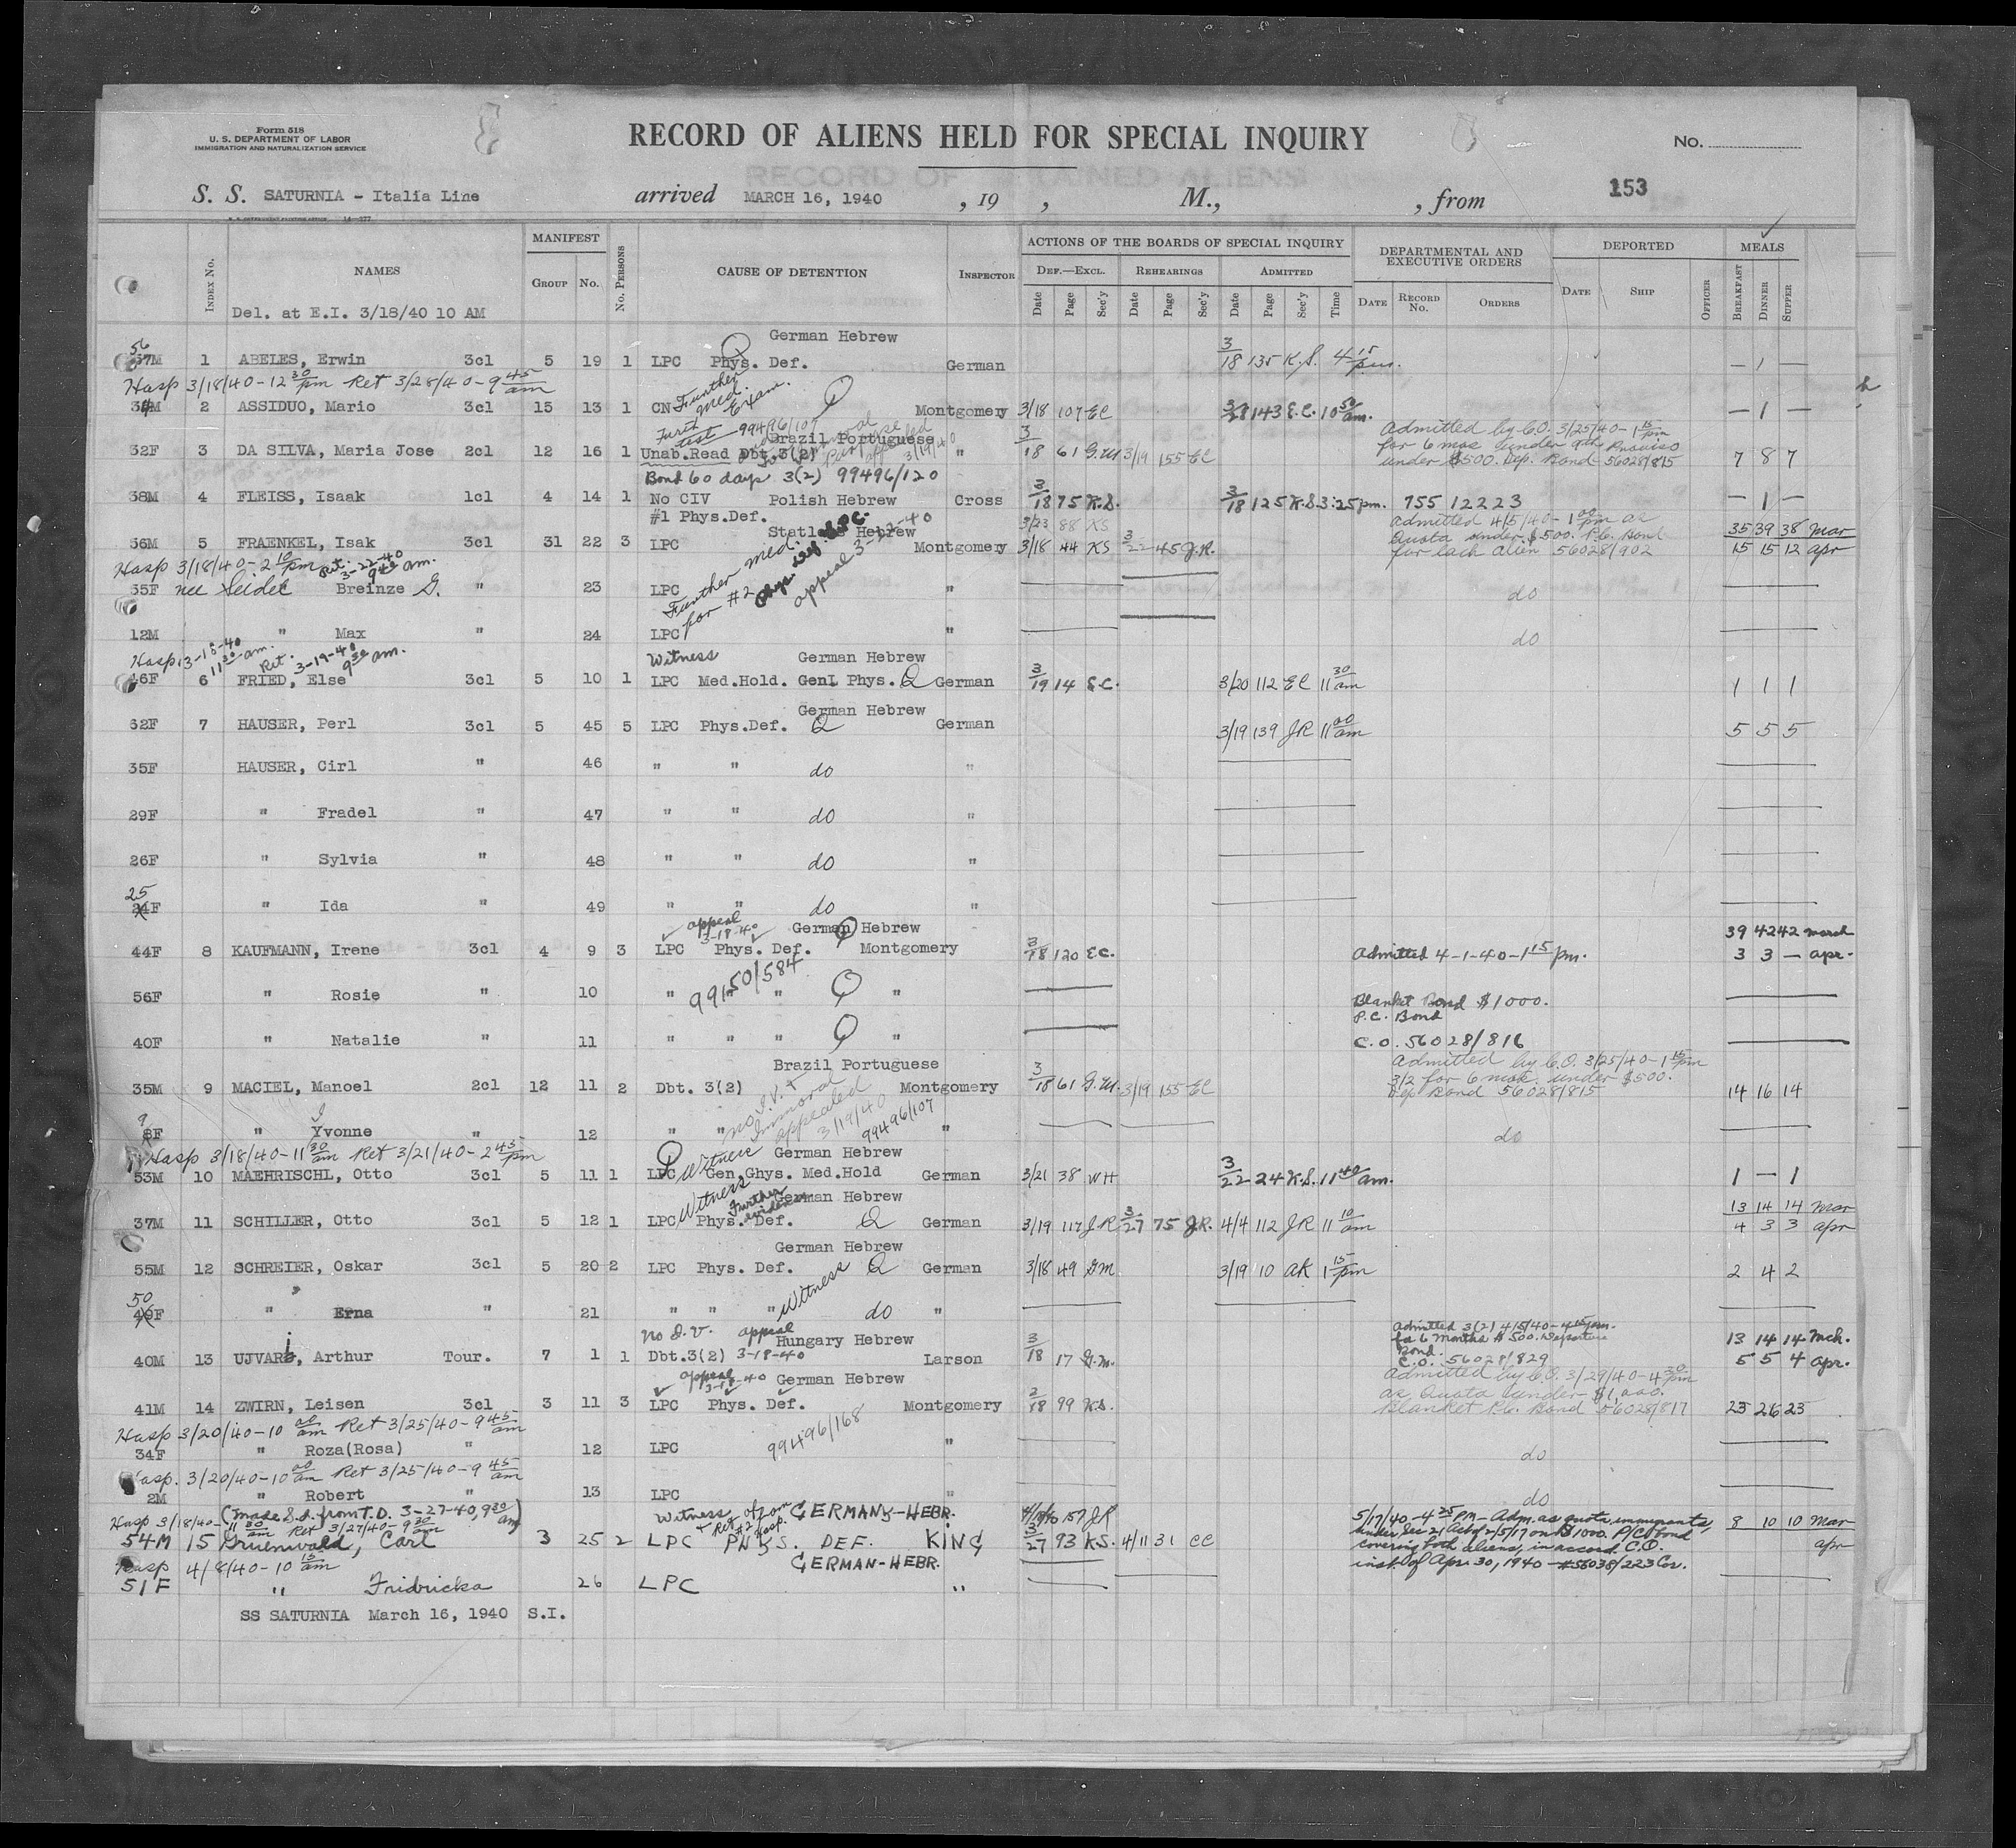 Form 518
U. S. DEPARTMENT OF LABOR
IMMIGRATION AND NATURALIZATION SERVICE
RECORD OF ALIENS HELD FOR SPECIAL INQUIRY
No.
S. S. SATURNIA - Italia Line arrived MARCH 16, 1940 , 19 , M., , from 153
INDEX No. NAMES MANIFEST GROUP No. No. PERSONS CAUSE OF DETENTION INSPECTOR ACTIONS OF THE BOARDS OF SPECIAL INQUIRY DEPARTMENTAL AND EXECUTIVE ORDERS DEPORTED MEALS
DEF.—EXCL. REHEARINGS ADMITTED
Date Page Sec'y Date Page Sec'y Date Page Sec'y Time DATE RECORD No. ORDERS DATE SHIP OFFICER BREAKFAST DINNER SUPPER
Del. at E.I. 3/18/40 10 AM
German Hebrew
56
57M 1 ABELES, Erwin 3cl 5 19 1 LPC Phys. Def. German 3/18 135 K.S. 4 15 pm. — 1 —
Hosp 3/18/40 - 12 30 pm Ret 3/28/40 - 9 45 am
34M 2 ASSIDUO, Mario 3cl 15 13 1 CN Further med. Exam. Montgomery 3/18 107 EC 143 E.C. 10 50 am. — 1 —
99496/107
Brazil Portuguese
32F 3 DA SILVA, Maria Jose 2cl 12 16 1 Unab.Read Dbt.3(2) " 3/18 61 G.M. 3/19 155 EC 7 8 7
Admitted by C.O. 3/25/40 - 1 15 pm
for 6 mos under 9th Proviso
under $500. Dep. Bond 56028/815
Bond 60 days 3(2) 99496/120
38M 4 FLEISS, Isaak 1cl 4 14 1 No CIV Polish Hebrew Cross 3/18 75 K.S. 3/18 125 K.S. 3:25 pm. 755 12223 — 1 —
#1 Phys.Def.
Statless Hebrew 3/23 88 KS
56M 5 FRAENKEL, Isak 3cl 31 22 3 LPC Montgomery 3/18 44 KS 3/22 45 J.R. 35 39 38 Mar
15 15 12 apr
admitted 4/5/40 - 1 00 pm as
Quota under $500. P.C. Bond
for each alien 56028/902
Hosp 3/18/40 - 2 10 pm Ret. 3-22-40 9 40 am.
Further med. for #2
appeal 3-22-40
35F nee Seidel Breinze G. " 23 LPC " do
12M " Max " 24 LPC " do
Hosp 3-18-40 11 30 am. Ret. 3-19-40 9 30 am.
Witness German Hebrew
46F 6 FRIED, Else 3cl 5 10 1 LPC Med.Hold. Genl Phys. German 3/19 14 E.C. 3/20 112 EC 11 30 am 1 1 1
German Hebrew
62F 7 HAUSER, Perl 3cl 5 45 5 LPC Phys.Def. German 3/19 139 JR 11 00 am 5 5 5
35F HAUSER, Cirl " 46 " " do "
29F " Fradel " 47 " " do "
26F " Sylvia " 48 " " do "
25
24F " Ida " 49 " " do "
appeal 3-18-40 German Hebrew 39 42 42 march
44F 8 KAUFMANN, Irene 3cl 4 9 3 LPC Phys. Def. Montgomery 3/18 120 EC. Admitted 4-1-40 - 1 15 pm. 3 3 — apr.
99150/584
56F " Rosie " 10 " " " "
Blanket Bond $1000.
P.C. Bond
40F " Natalie " 11 " " " " C.O. 56028/816
Brazil Portuguese
35M 9 MACIEL, Manoel 2cl 12 11 2 Dbt. 3(2) Montgomery 3/18 61 G.M. 3/19 155 EC 14 16 14
Admitted by C.O. 3/25/40 - 1 15 pm
3/2 for 6 mos. under $500.
Dep Bond 56028/815
no I.V. + Immoral appealed 3/19/40 99496/107
9
8F " Yvonne " 12 " " " do
Hosp 3/18/40 - 11 30 am Ret 3/21/40 - 2 45 pm
Witness German Hebrew
53M 10 MAEHRISCHL, Otto 3cl 5 11 1 LPC Gen.Ghys. Med.Hold German 3/21 38 WH 3/22 24 K.S. 11 40 am. 1 — 1
Witness Further evidence German Hebrew 13 14 14 Mar
37M 11 SCHILLER, Otto 3cl 5 12 1 LPC Phys. Def. German 3/19 117 J.R 3/27 75 J.R. 4/4 112 JR 11 10 am 4 3 3 apr
German Hebrew
55M 12 SCHREIER, Oskar 3cl 5 20 2 LPC Phys. Def. Witness German 3/18 49 GM 3/19 10 AK 1 15 pm 2 4 2
50
49F " Erna " 21 " " " do "
No I.V. appeal
Hungary Hebrew 13 14 14 Mch.
40M 13 UJVARi, Arthur Tour. 7 1 1 Dbt.3(2) 3-18-40 Larson 3/18 17 G.M. 5 5 4 apr.
Admitted 3(2) 4/5/40 - 4 15 pm.
for 6 months $500. Departure
Bond.
C.O. 56028/829
appeal 3-18-40 German Hebrew
41M 14 ZWIRN, Leisen 3cl 3 11 3 LPC Phys. Def. Montgomery 99 K.S. 23 26 23
Admitted by C.O. 3/29/40 - 4 30 pm
as Quota under $1,000.
Blanket P.C. Bond 56028/817
Hosp 3/20/40 - 10 00 am Ret 3/25/40 - 9 45 am
99496/168
34F " Roza(Rosa) " 12 LPC " do
Hosp. 3/20/40 - 10 00 am Ret 3/25/40 - 9 45 am
2M " Robert " 13 LPC " do
(made S.I. from T.D. 3-27-40, 9 30 am)
Hosp 3/18/40 - 11 30 am Ret 3/27/40 - 9 30 am
Witness GERMANY-HEBR. 157 JR
54M 15 Gruenwald, Carl 3 25 2 LPC PHYS. DEF. KING 3/27 93 K.S. 4/11 31 CC 8 10 10 Mar
apr
5/17/40 - 4 25 PM - Adm. as quota immigrants,
under Sec 21 Act of 2/5/17 on $1000. P/C bond
covering both aliens, in accord C.O.
inst. of Apr. 30, 1940 - #56038/223 Cr.
Hosp 4/8/40 - 10 15 am
GERMAN-HEBR.
51F " Fridricka 26 LPC "
SS SATURNIA March 16, 1940 S.I.